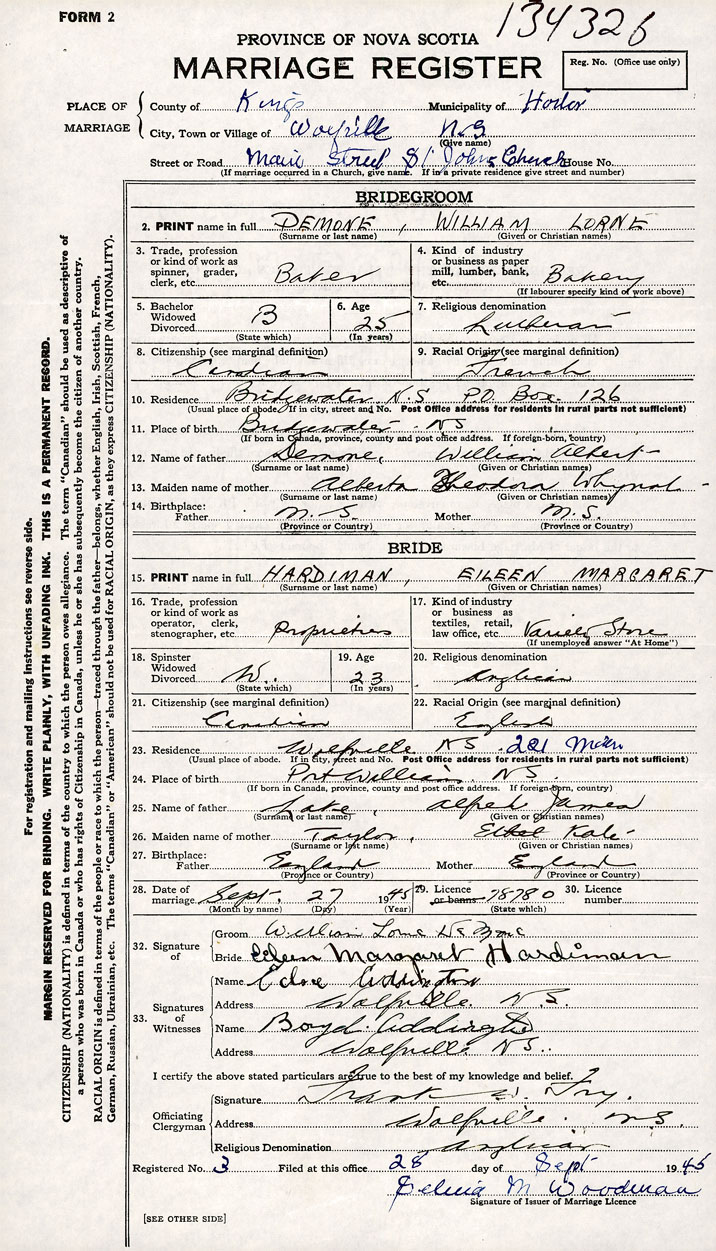 FORM 2
134326
PROVINCE OF NOVA SCOTIA
MARRIAGE REGISTER
Reg. No. (Office use only)
PLACE OF MARRIAGE
County of Kings Municipality of
City, Town or Village of Wolfville N.S
(Give name)
Street or Road Main Street St Johns Church House No.
(If marriage occurred in a Church, give name. If in a private residence give street and number)
BRIDEGROOM
2. PRINT name in full DEMONE, WILLIAM LORNE
(Surname or last name) (Given or Christian names)
3. Trade, profession or kind of work as spinner, grader, clerk, etc. Baker
4. Kind of industry or business as paper mill, lumber, bank, etc. Bakery
(If labourer specify kind of work above)
5. Bachelor Widowed Divorced B
(State which)
6. Age 25
(In years)
7. Religious denomination Lutheran
8. Citizenship (see marginal definition) Canadian
9. Racial Origin (see marginal definition) French
10. Residence Bridgewater N.S P.O. Box. 126
(Usual place of abode. If in city, street and No. Post Office address for residents in rural parts not sufficient)
11. Place of birth Bridgewater - NS.
(If born in Canada, province, county and post office address. If foreign-born, country)
12. Name of father Demone, William Albert -
(Surname or last name) (Given or Christian names)
13. Maiden name of mother Alberta Theodora Whynot -
(Surname or last name) (Given or Christian names)
14. Birthplace: Father N.S. Mother N.S.
(Province or Country) (Province or Country)
BRIDE
15. PRINT name in full HARDIMAN, EILEEN MARGARET
(Surname or last name) (Given or Christian names)
16. Trade, profession or kind of work as operator, clerk, stenographer, etc. Proprietress
17. Kind of industry or business as textiles, retail, law office, etc. Variety Store
(If unemployed answer "At Home")
18. Spinster Widowed Divorced W.
(State which)
19. Age 23
(In years)
20. Religious denomination Anglican
21. Citizenship (see marginal definition) Canadian
22. Racial Origin (see marginal definition) English
23. Residence Wolfville NS. 221 Main
(Usual place of abode. If in city, street and No. Post Office address for residents in rural parts not sufficient)
24. Place of birth Port Williams. NS.
(If born in Canada, province, county and post office address. If foreign-born, country)
25. Name of father Lake, Alfred James
(Surname or last name) (Given or Christian names)
26. Maiden name of mother Taylor, Ethel Kate
(Surname or last name) (Given or Christian names)
27. Birthplace: Father England Mother England
(Province or Country) (Province or Country)
28. Date of marriage Sept. 27 1945
(Month by name) (Day) (Year)
29. Licence or banns 78780
(State which)
30. Licence number
32. Signature of
Groom William Lorne DeMone
Bride Eileen Margaret Hardiman
33. Signatures of Witnesses
Name Addington
Address Wolfville. N.S.
Name Boyd Addington
Address Wolfville NS..
I certify the above stated particulars are true to the best of my knowledge and belief.
Officiating Clergyman
Signature Frank W. Fry.
Address Wolfville. N.S.
Religious Denomination Anglican
Registered No. 3 Filed at this office 28 day of Sept 1945
M Woodman
Signature of Issuer of Marriage Licence
[SEE OTHER SIDE]
For registration and mailing instructions see reverse side.
MARGIN RESERVED FOR BINDING. WRITE PLAINLY, WITH UNFADING INK. THIS IS A PERMANENT RECORD.
CITIZENSHIP (NATIONALITY) is defined in terms of the country to which the person owes allegiance. The term "Canadian" should be used as descriptive of
a person who was born in Canada or who has rights of Citizenship in Canada, unless he or she has subsequently become the citizen of another country.
RACIAL ORIGIN is defined in terms of the people or race to which the person—traced through the father—belongs, whether English, Irish, Scottish, French,
German, Russian, Ukrainian, etc. The terms "Canadian" or "American" should not be used for RACIAL ORIGIN, as they express CITIZENSHIP (NATIONALITY).